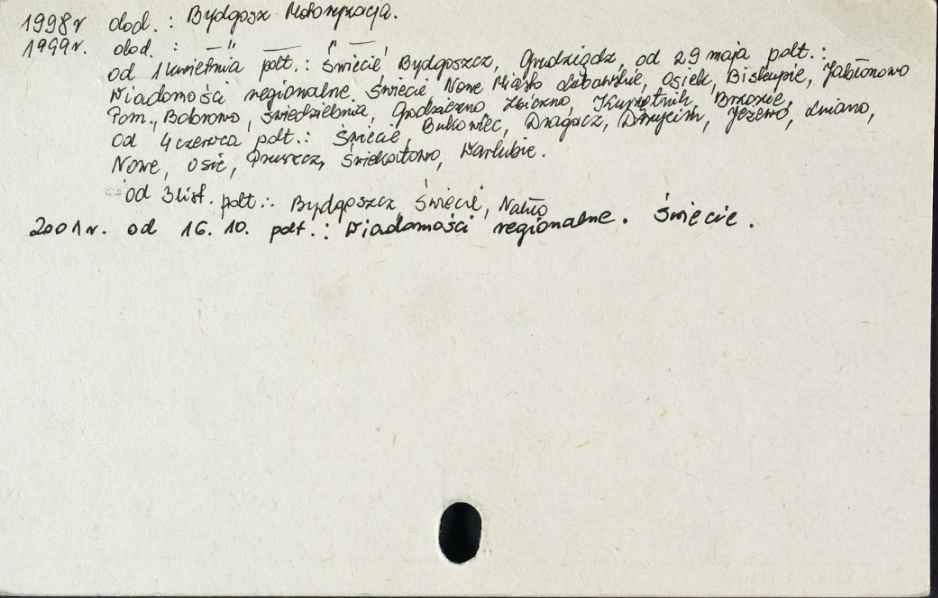 1998r dod. : Bydgoszcz Motoryzacja.
1999r. dod. : — " — " —
od 1 kwietnia podt.: Świecie Bydgoszcz, Grudziądz, od 29 maja podt.:
Wiadomości regionalne. Świecie Nowe Miasto Lubawskie, Osiek, Biskupie, Jabłonowo
Pom., Bobrowo, Świedziebnia, Grodziczno, Zbiczno, Kurzętnik, Brzozie,
od 4 czerwca podt.: Świecie, Bukowiec, Dragacz, Drzycim, Jeżewo, Lniano,
Nowe, Osie, Pruszcz, Świekatowo, Warlubie.
od 3 list. podt.: Bydgoszcz Świecie, Nakło
2001r. od 16. 10. podt.: Wiadomości regionalne. Świecie.